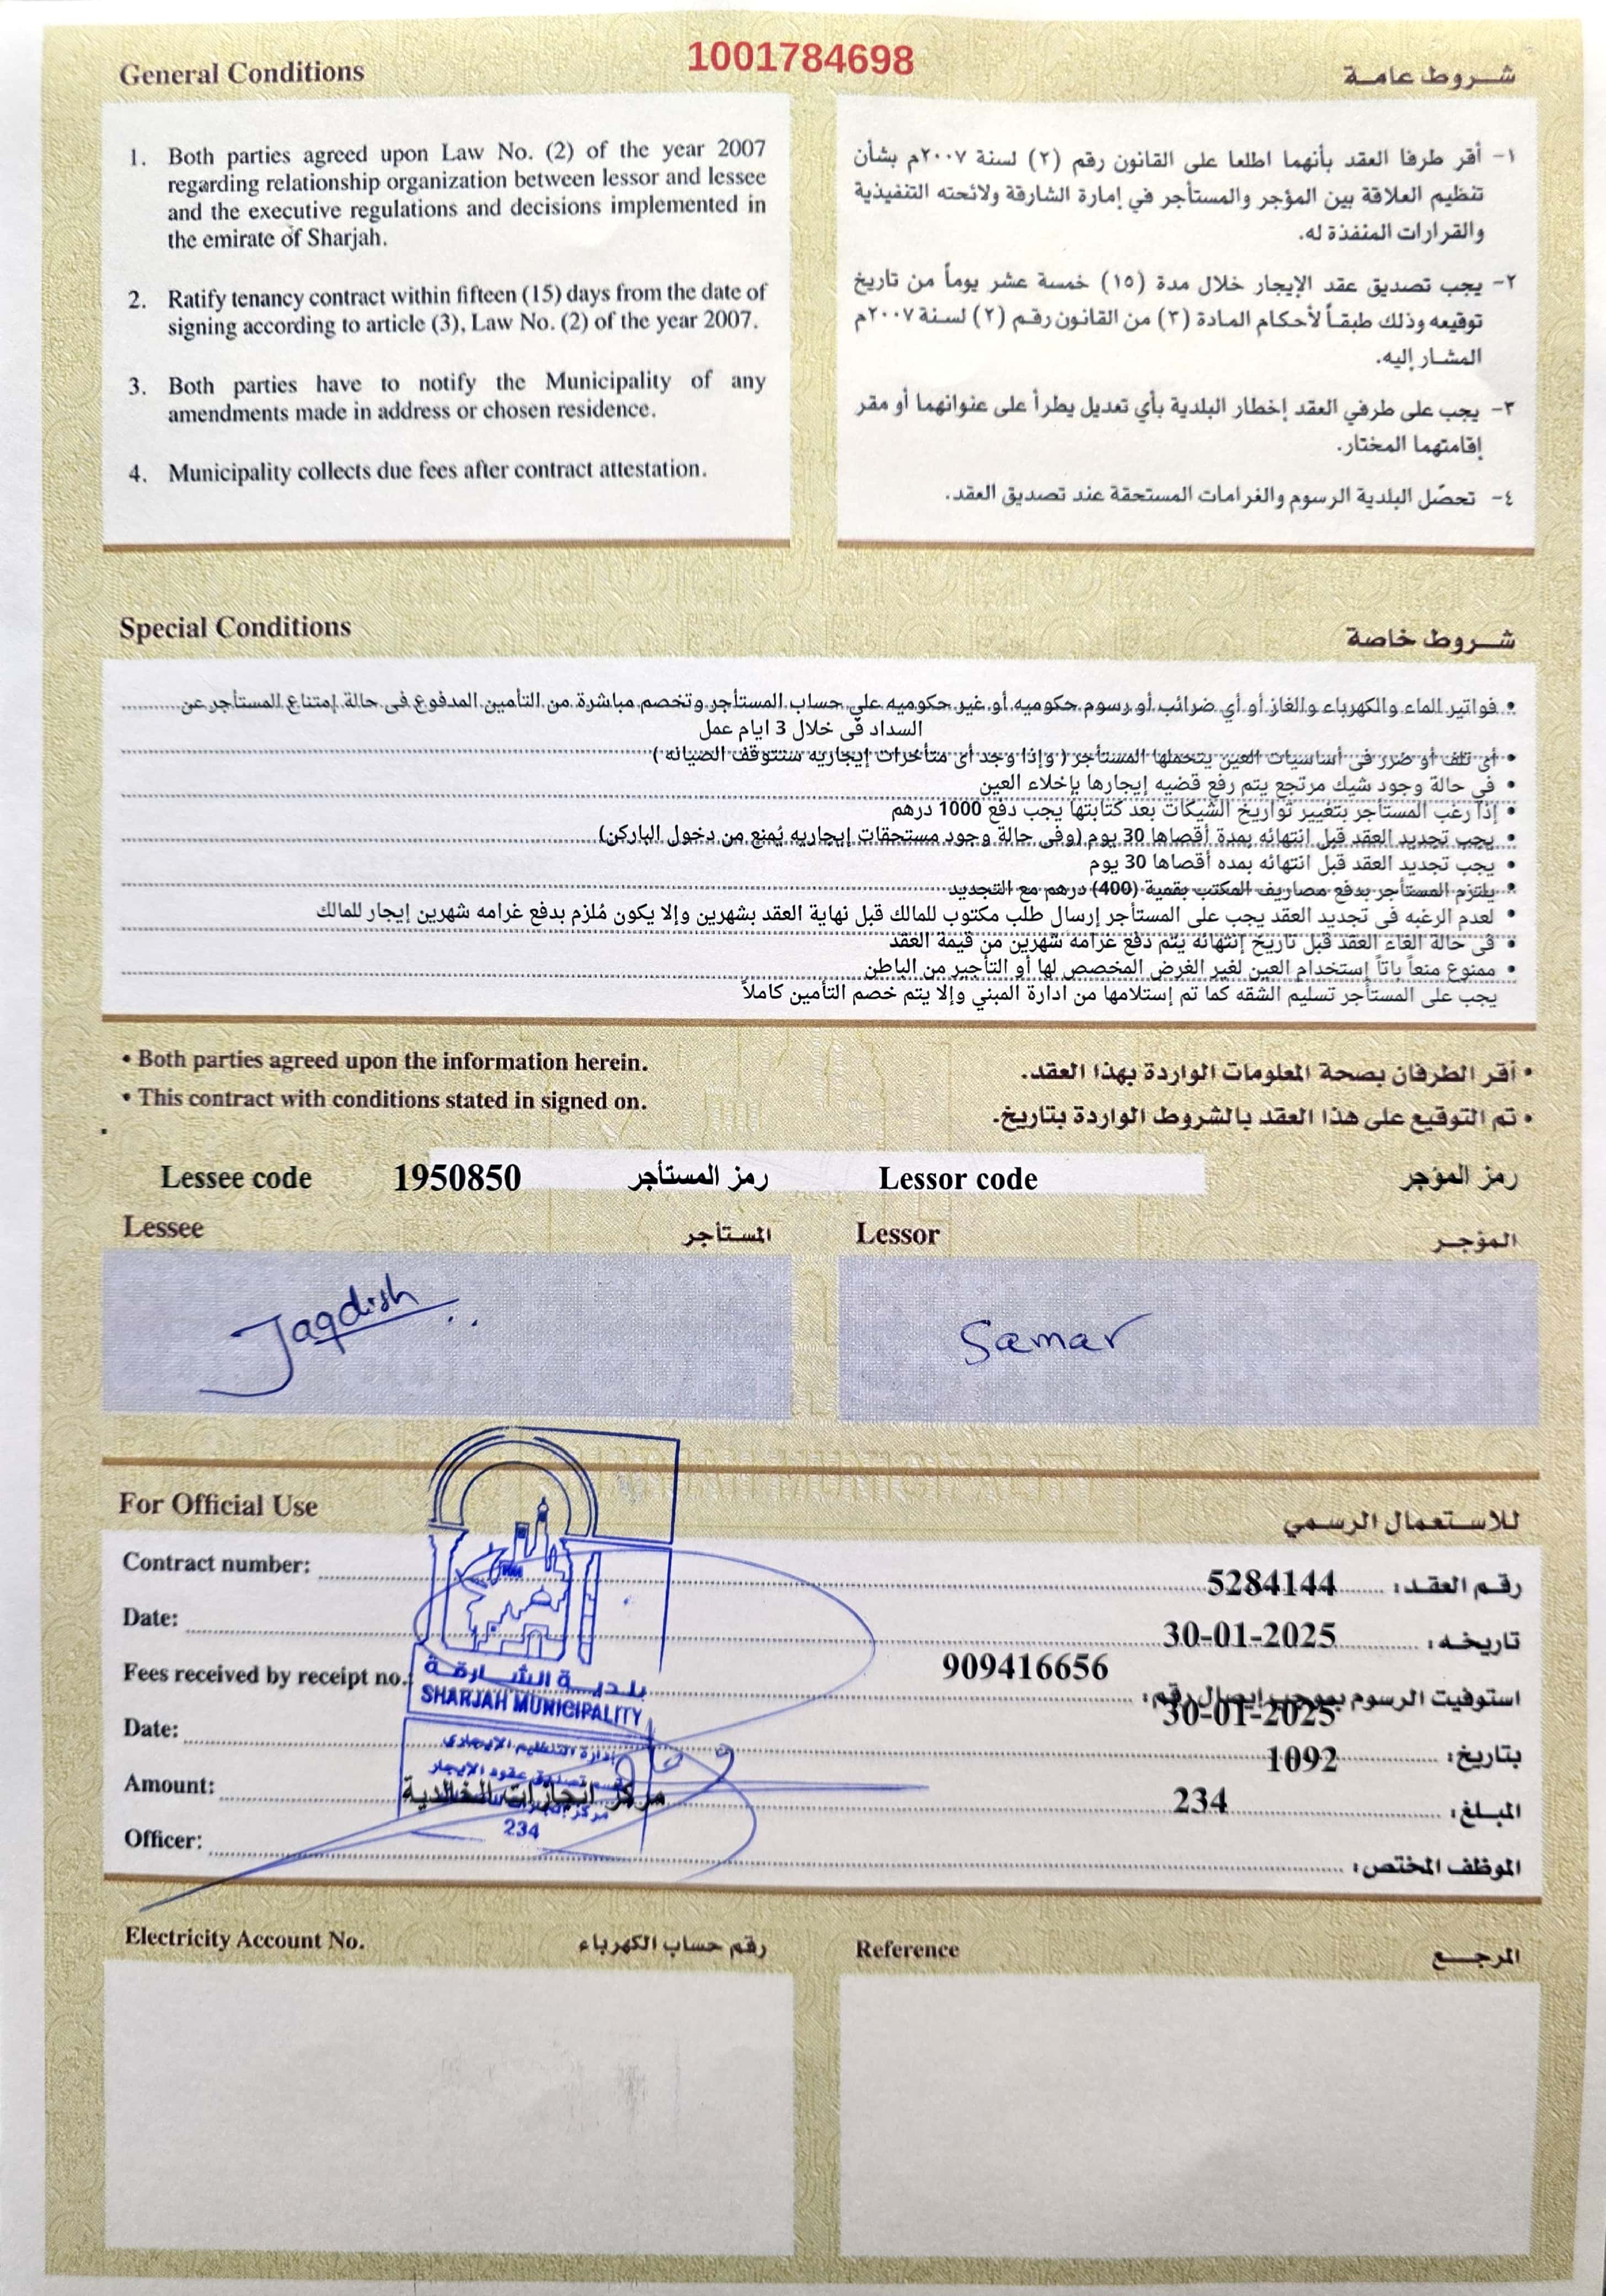 1001784698
General Conditions
شروط عامة
1. Both parties agreed upon Law No. (2) of the year 2007
regarding relationship organization between lessor and lessee
and the executive regulations and decisions implemented in
the emirate of Sharjah.
2. Ratify tenancy contract within fifteen (15) days from the date of
signing according to article (3), Law No. (2) of the year 2007.
3. Both parties have to notify the Municipality of any
amendments made in address or chosen residence.
4. Municipality collects due fees after contract attestation.
١- أقر طرفا العقد بأنهما اطلعا على القانون رقم (٢) لسنة ٢٠٠٧م بشأن
تنظيم العلاقة بين المؤجر والمستأجر في إمارة الشارقة ولائحته التنفيذية
والقرارات المنفذة له.
٢- يجب تصديق عقد الإيجار خلال مدة (١٥) خمسة عشر يوماً من تاريخ
توقيعه وذلك طبقاً لأحكام المادة (٣) من القانون رقم (٢) لسنة ٢٠٠٧م
المشار إليه.
٣- يجب على طرفي العقد إخطار البلدية بأي تعديل يطرأ على عنوانهما أو مقر
إقامتهما المختار.
٤- تحصّل البلدية الرسوم والغرامات المستحقة عند تصديق العقد.
Special Conditions
شروط خاصة
• فواتير الماء والكهرباء والغاز أو أي ضرائب أو رسوم حكوميه أو غير حكوميه علي حساب المستأجر وتخصم مباشرة من التأمين المدفوع فى حالة إمتناع المستأجر عن
السداد فى خلال 3 ايام عمل
• أى تلف أو ضرر فى أساسيات العين يتحملها المستأجر ( وإذا وجد أى متأخرات إيجاريه ستتوقف الصيانه )
• في حالة وجود شيك مرتجع يتم رفع قضيه إيجارها بإخلاء العين
• إذا رغب المستأجر بتغيير تواريخ الشيكات بعد كتابتها يجب دفع 1000 درهم
• يجب تجديد العقد قبل انتهائه بمدة أقصاها 30 يوم (وفى حالة وجود مستحقات إيجاريه يُمنع من دخول الباركن)
• يجب تجديد العقد قبل انتهائه بمده أقصاها 30 يوم
• يلتزم المستأجر بدفع مصاريف المكتب بقمية (400) درهم مع التجديد
• لعدم الرغبه فى تجديد العقد يجب على المستأجر إرسال طلب مكتوب للمالك قبل نهاية العقد بشهرين وإلا يكون مُلزم بدفع غرامه شهرين إيجار للمالك
• فى حالة الغاء العقد قبل تاريخ إنتهائه يتم دفع غرامه شهرين من قيمة العقد
• ممنوع منعاً باتاً إستخدام العين لغير الغرض المخصص لها أو التأجير من الباطن
يجب على المستأجر تسليم الشقه كما تم إستلامها من ادارة المبني وإلا يتم خصم التأمين كاملاً
• Both parties agreed upon the information herein.
• أقر الطرفان بصحة المعلومات الواردة بهذا العقد.
• This contract with conditions stated in signed on.
• تم التوقيع على هذا العقد بالشروط الواردة بتاريخ.
Lessee code 1950850 رمز المستأجر Lessor code رمز المؤجر
Lessee المستأجر Lessor المؤجر
Jaqdish
Samar
For Official Use
للاستعمال الرسمي
Contract number: 5284144 رقم العقد:
Date: 30-01-2025 تاريخه:
Fees received by receipt no.: 909416656 استوفيت الرسوم بموجب إيصال رقم:
30-01-2025
Date: 1092 بتاريخ:
Amount: 234 المبلغ:
Officer: الموظف المختص:
بلدية الشارقة
SHARJAH MUNICIPALITY
إدارة التنظيم الإيجاري
قسم تصديق عقود الإيجار
مركز ايجارات الخالدية
234
Electricity Account No. رقم حساب الكهرباء
Reference المرجع